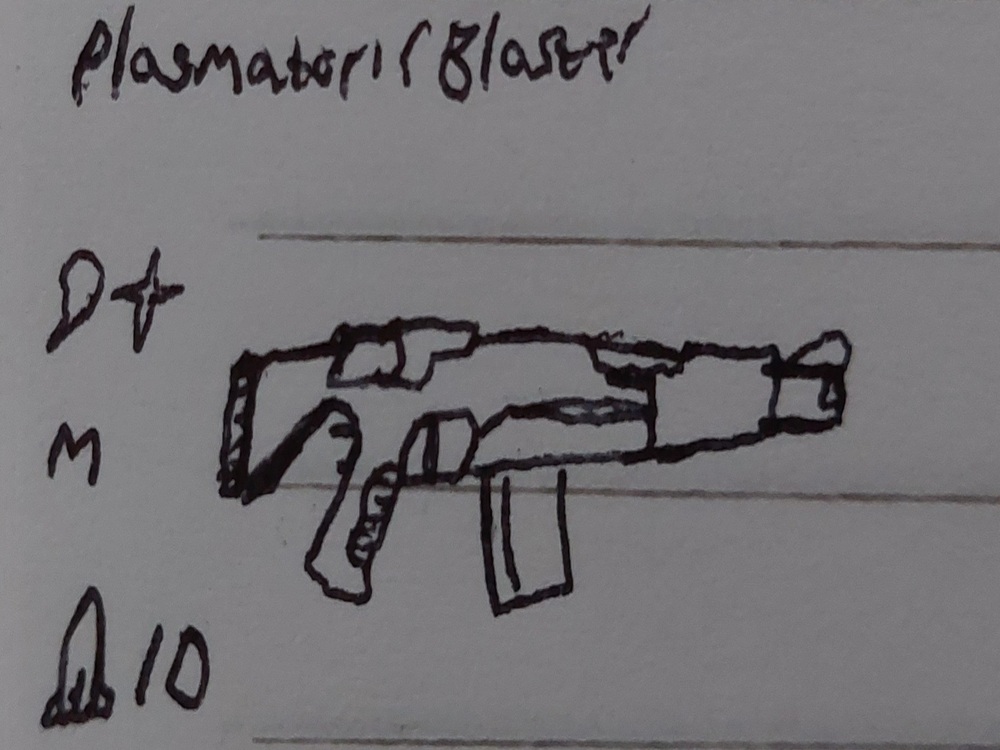 Plasmatoric Blaster
D
M
10